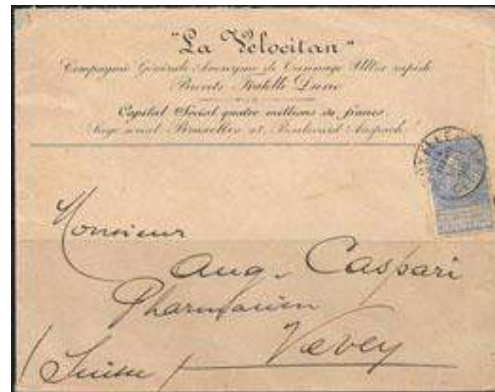 "La Velocitan"
Compagnie Générale Anonyme de Tannage Ultra rapide
Brevets Fratelli Durio
Capital Social quatre millions de francs
Siège social Bruxelles Boulevard Anspach
Monsieur
Aug. Caspari
Pharmacien
Vevey
(Suisse)